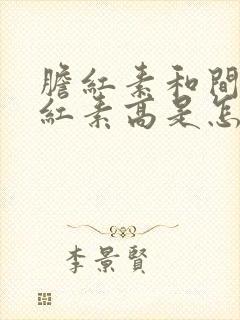 膽紅素和間
紅素高是怎
李景賢